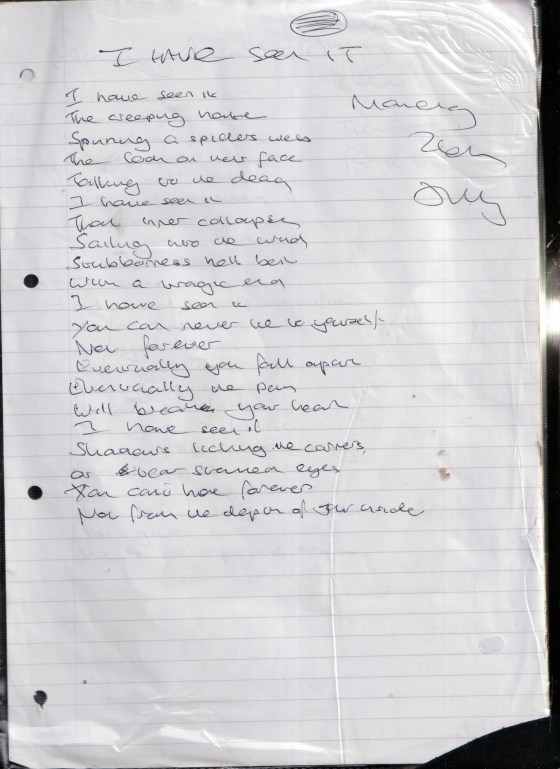 I HAVE SEEN IT
I have seen it
The creeping
Spinning a spiders web
The look on her face
Talking to the dead
I have seen it
That inner collapse
Sailing into the wind
Stubborness hell bent
With a tragic end
I have seen it
You can never lie to yourself
Not forever
Eventually you fall apart
Eventually the pain
Will break your heart
I have seen it
Shadows licking the corners
of tear stained eyes
You can't hide forever
Not from the depth of
Monday
July